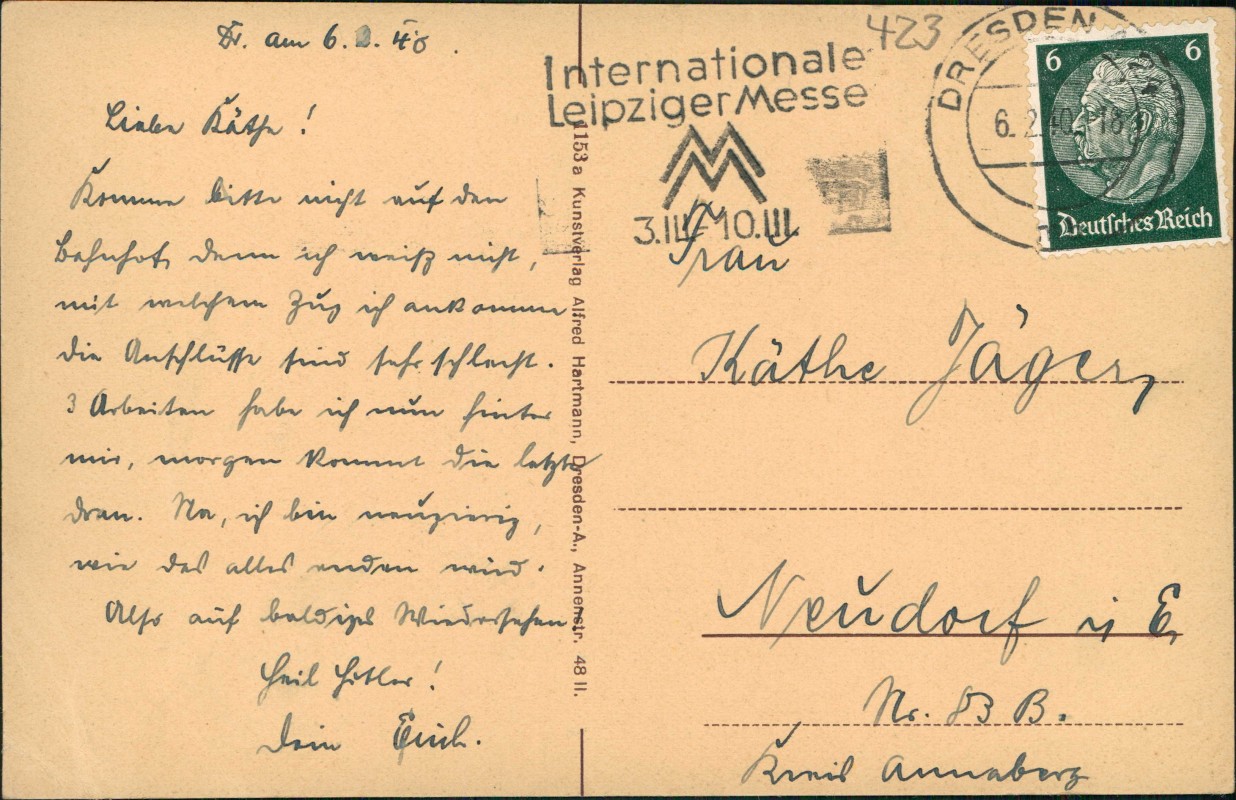 Dr. am 6.2.40.
Liebe Käthe!
Komme bitte nicht auf den
Bahnhof, denn ich weiß nicht,
mit welchem Zug ich ankomme
die Anschlüsse sind sehr schlecht.
3 Arbeiten habe ich nun hinter
mir, morgen kommt die letzte
dran. Na, ich bin neugierig,
wie das alles enden wird.
Also auf baldiges Wiedersehen
Heil Hitler!
Dein Erich.
1153a Kunstverlag Alfred Hartmann, Dresden-A., Annenstr. 48 II.
423
Internationale
Leipziger Messe
MM
3.III-10.III.
DRESDEN
6.2.40.18
6 6
Deutsches Reich
Frau
Käthe Jäger,
Neudorf i, E,
Nr. 83 B.
Kreis Annaberg